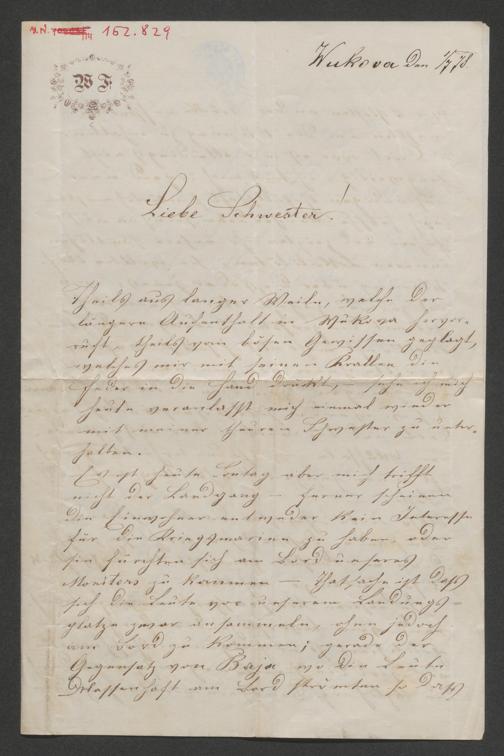 152.829
W F
Wukova den 1/7 78
Liebe Schwester!
Theils aus langer Weile, welche der
längere Aufenthalt in Wukova hervor-
ruft, theils vom bösen Gewissen geplagt,
welches mir mit seinen Krallen die
Feder in die Hand drückt, – sehe ich mich
heute veranlasst mich einmal wieder
mit meiner theuren Schwester zu unter-
halten.
Es ist heute Sontag aber mich trifft
nicht der Landgang – ferner scheinen
die Einwohner entweder kein Interesse
für die Kriegsmarine zu haben oder
sie fürchten sich am Bord unseres
Monitors zu kommen – Thatsache ist dass
sich die Leute vor unserem Landungs-
platze zwar ansammeln, ohne jedoch
am Bord zu kommen; gerade der
Gegensatz von Baja wo die Leute
Massenhaft am Bord strömten so dass